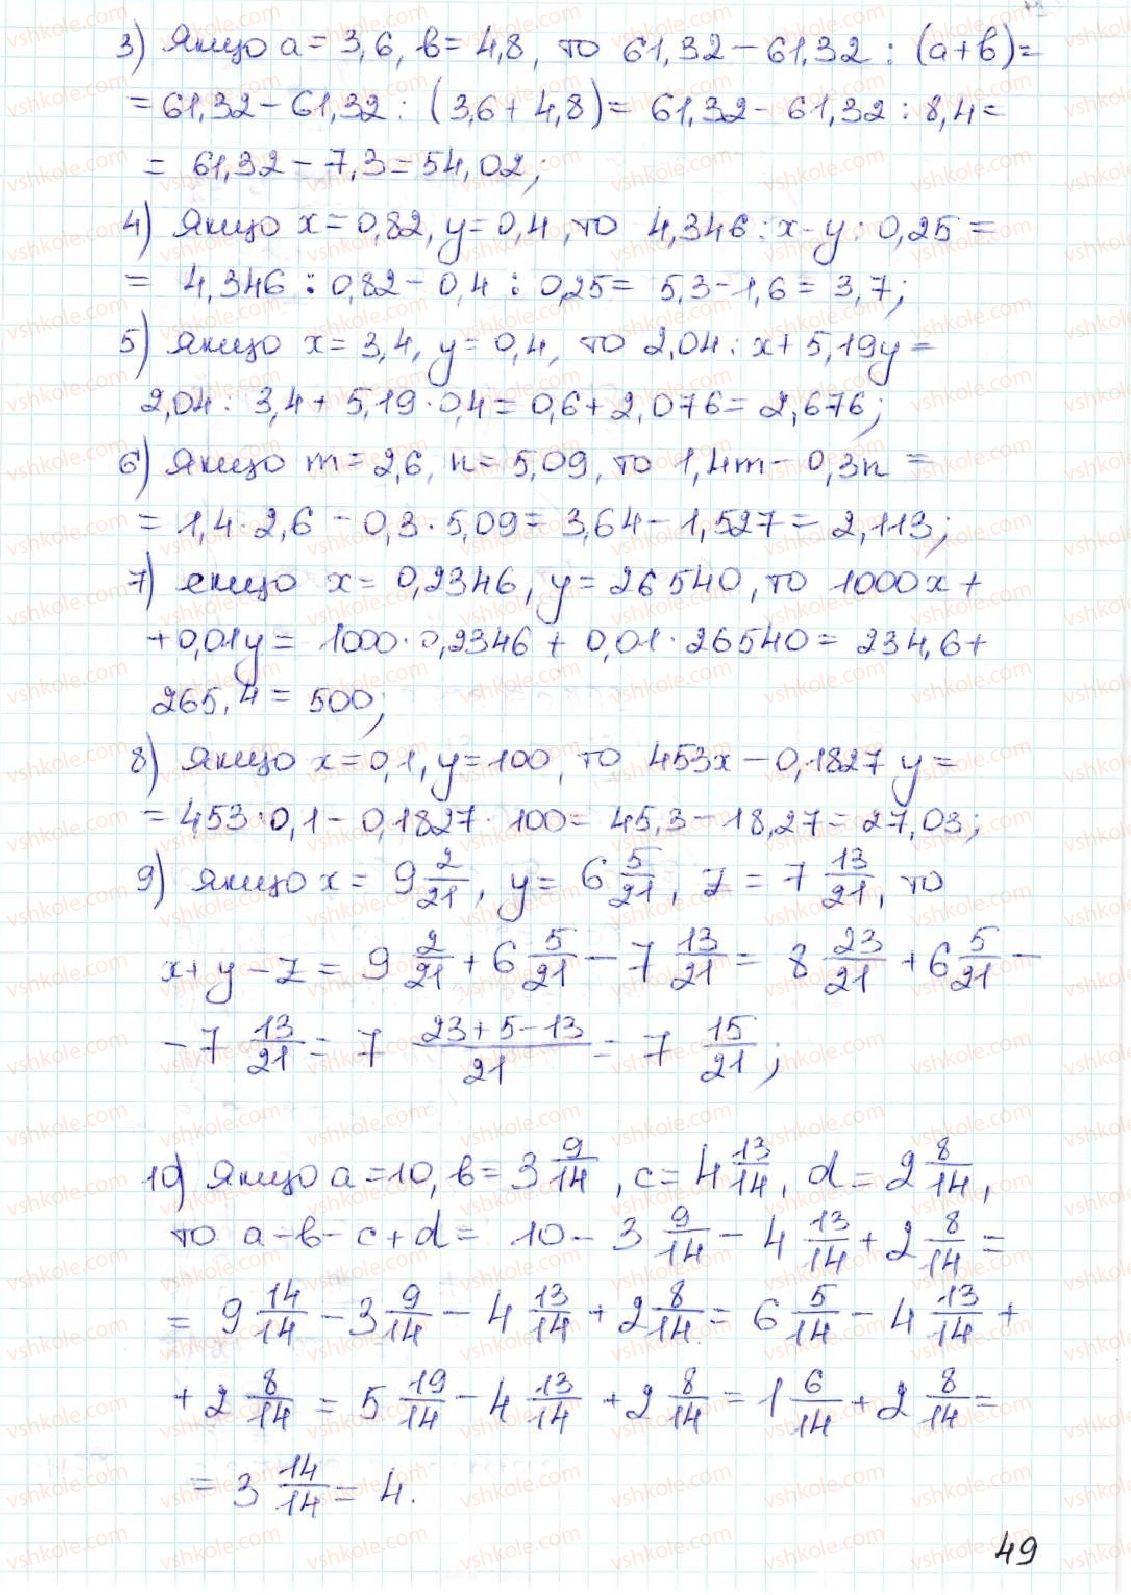 3) Якщо a = 3,6, b = 4,8, то 61,32 − 61,32 : (a + b) =
= 61,32 − 61,32 : (3,6 + 4,8) = 61,32 − 61,32 : 8,4 =
= 61,32 − 7,3 = 54,02;
4) Якщо x = 0,82, y = 0,4, то 4,346 : x − y : 0,25 =
= 4,346 : 0,82 − 0,4 : 0,25 = 5,3 − 1,6 = 3,7;
5) Якщо x = 3,4, y = 0,4, то 2,04 : x + 5,19y =
2,04 : 3,4 + 5,19 · 0,4 = 0,6 + 2,076 = 2,676;
6) Якщо m = 2,6, n = 5,09, то 1,4m − 0,3n =
= 1,4 · 2,6 − 0,3 · 5,09 = 3,64 − 1,527 = 2,113;
7) якщо x = 0,2346, y = 26540, то 1000x +
+ 0,01y = 1000 · 0,2346 + 0,01 · 26540 = 234,6 +
265,4 = 500;
8) Якщо x = 0,1, y = 100, то 453x − 0,1827y =
= 453 · 0,1 − 0,1827 · 100 = 45,3 − 18,27 = 27,03;
9) якщо x = 9 2/21, y = 6 5/21, z = 7 13/21, то
x + y − z = 9 2/21 + 6 5/21 − 7 13/21 = 8 23/21 + 6 5/21 −
− 7 13/21 = 7 (23+5−13)/21 = 7 15/21;
10) Якщо a = 10, b = 3 9/14, c = 4 13/14, d = 2 8/14,
то a − b − c + d = 10 − 3 9/14 − 4 13/14 + 2 8/14 =
= 9 14/14 − 3 9/14 − 4 13/14 + 2 8/14 = 6 5/14 − 4 13/14 +
+ 2 8/14 = 5 19/14 − 4 13/14 + 2 8/14 = 1 6/14 + 2 8/14 =
= 3 14/14 = 4.
49